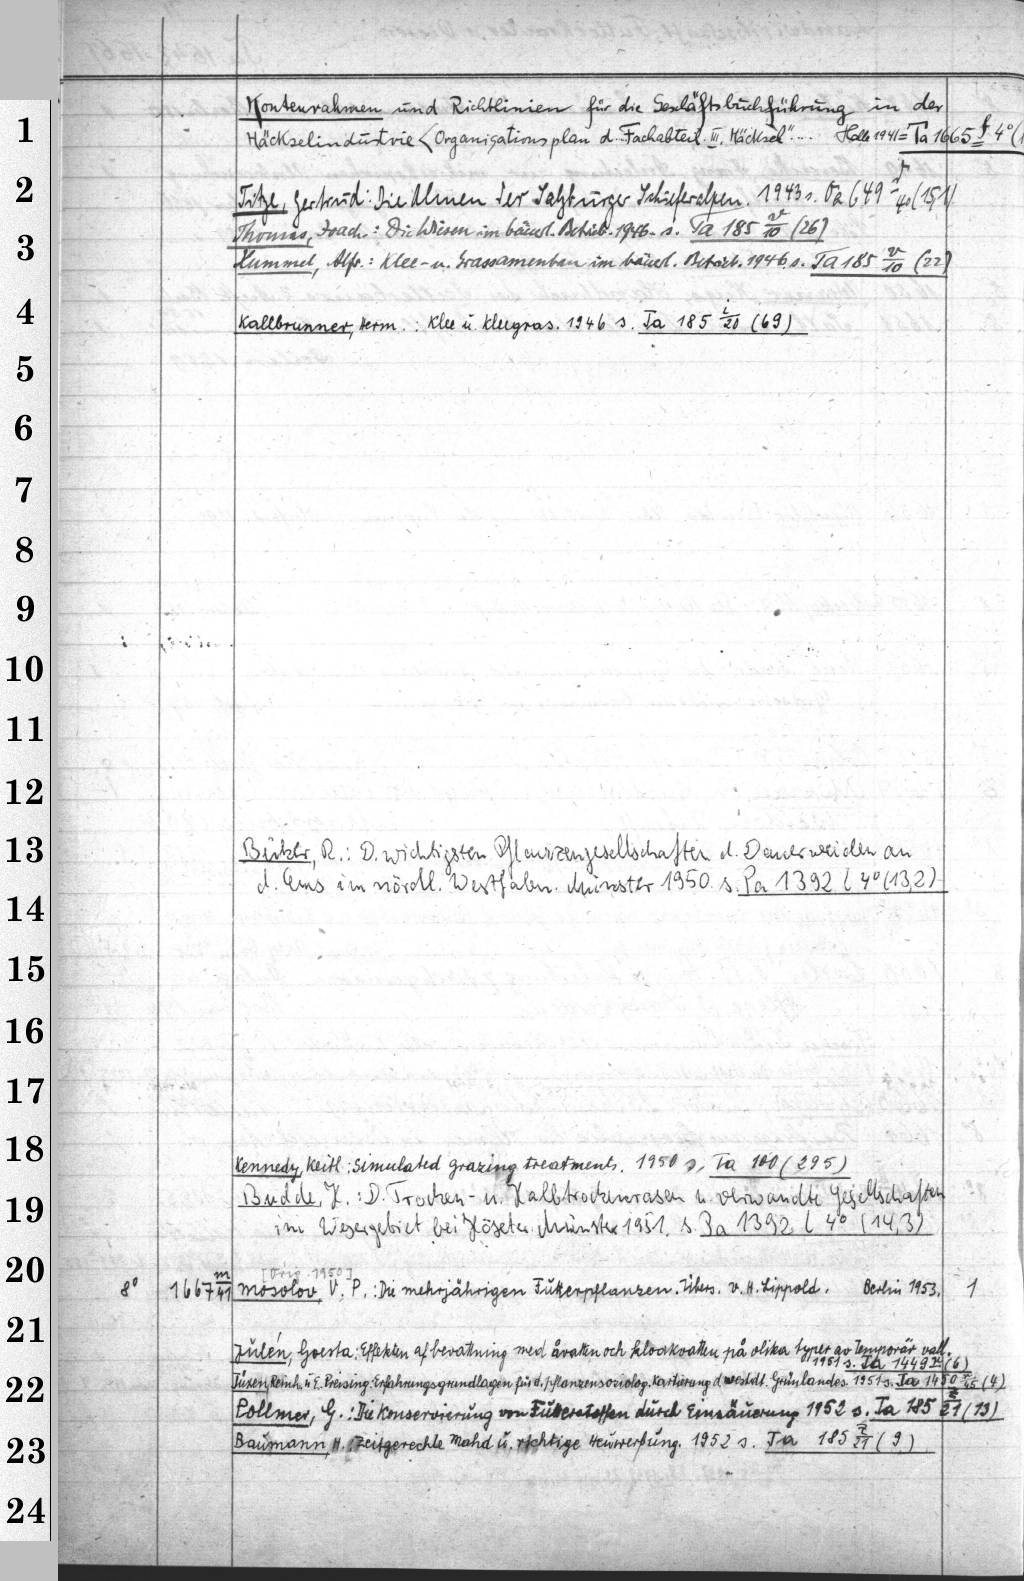 Kontenrahmen und Richtlinien für die Geschäftsbuchführung in der
1 Häckselindustrie < Organisationsplan d. "Fachabteil. III, Häcksel".... Halle 1941 = Ta 1665 f 4°
2 Titze, Gertrud: Die Almen der Salzburger Schieferalpen. 1943 s. Oa 649 4° (15,1)
Thomas, Joach.: Die Wiesen im bäuerl. Betrieb. 1946. s. Ta 185 v/10 (26)
3 Hummel, Alfr.: Klee- u. Grassamenbau im bäuerl. Betrieb. 1946 s. Ta 185 v/10 (22)
4 Kallbrunner, Herm.: Klee u. Kleegras. 1946 s. Ta 185 i/20 (69)
5
6
7
8
9
10
11
12
13 Büker, R.: D. wichtigsten Pflanzengesellschaften d. Dauerweiden an
d. Ems im nördl. Westfalen. Münster 1950. s. Pa 1392 l 4° (13,2)
14
15
16
17
18 Kennedy, Keitl: Simulated grazing treatments. 1950 s. Ta 100 (295)
Budde, H.: D. Trocken- u. Halbtrockenrasen u. verwandte Gesellschaften
19 im Wesergebiet bei Höxter. Münster 1951. s. Pa 1392 l 4° (14,3)
20 [Orig. 1950]
8° 1667 m/41 Mosolov, V. P.: Die mehrjährigen Futterpflanzen. Übers. v. H. Lippold. Berlin 1953. 1
21 Julén, Goesta: Effekten af bevattning med åvatten och kloakvatten på olika typer av temporär vall.
1951 s. Ta 1449 (6)
22 Tüxen, Reinh. u. E. Preising: Erfahrungsgrundlagen für d. pflanzensoziolog. Kartierung d. westdt. Grünlandes. 1951 s. Ta 1450 (4)
Pollmer, G.: Die Konservierung von Futterstoffen durch Einsäuerung 1952 s. Ta 185 z/21 (13)
23 Baumann, H.: Zeitgerechte Mahd u. richtige Heuwerbung. 1952 s. Ta 185 z/21 (9)
24